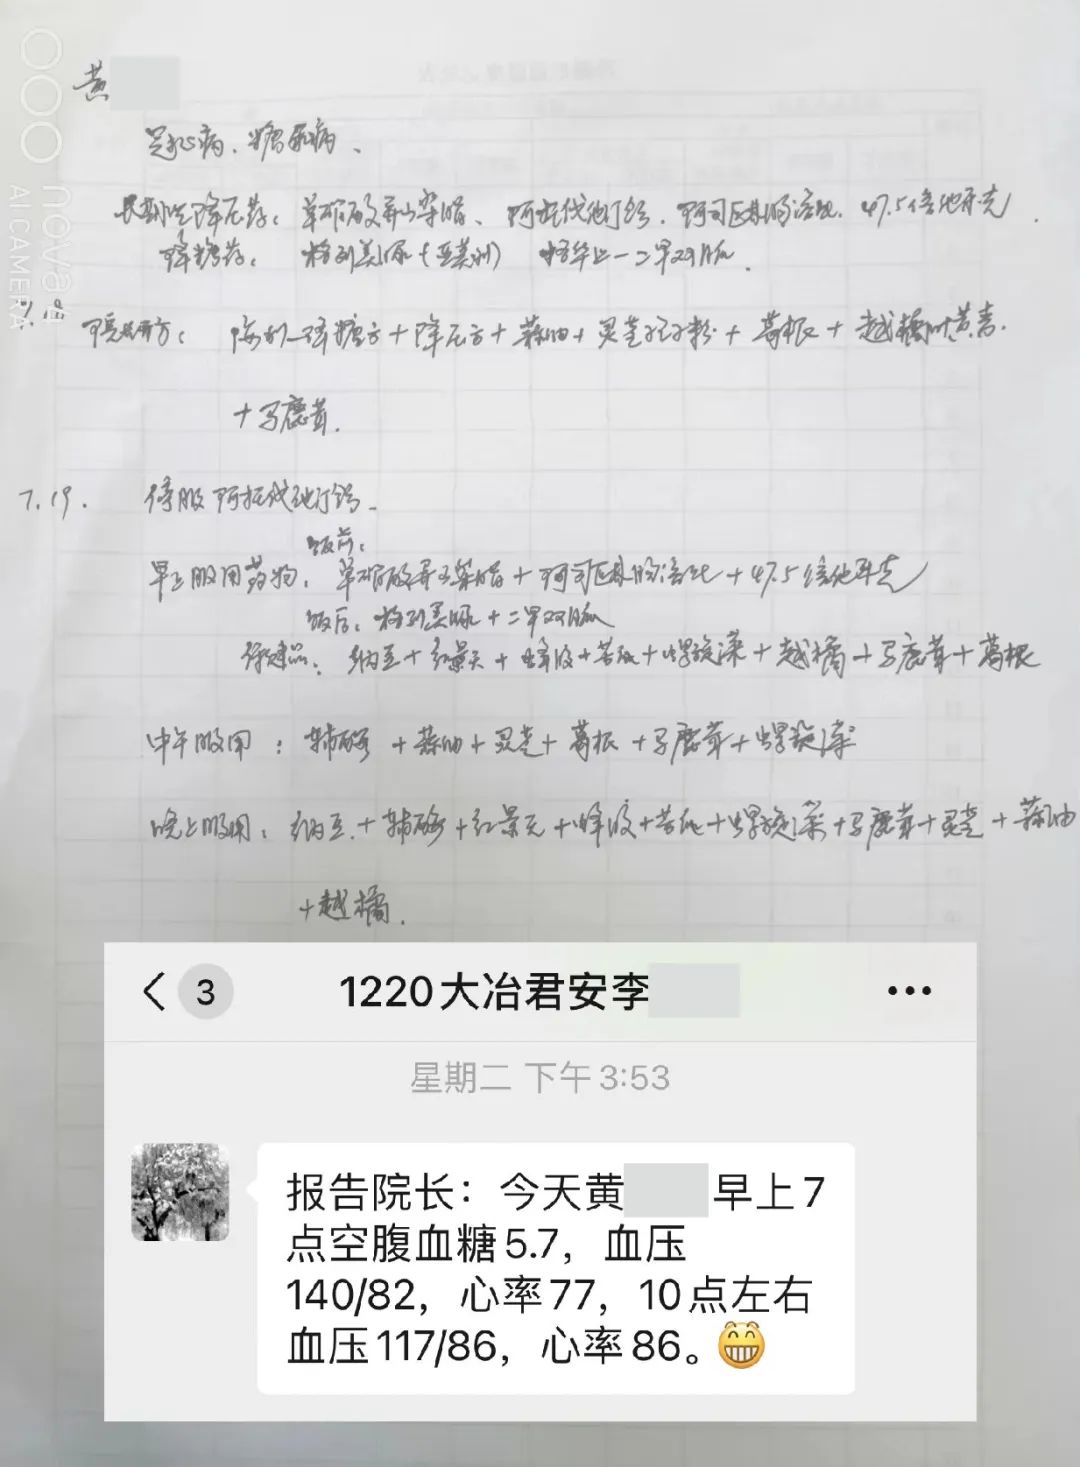 黄
冠心病、糖尿病、
长期吃降压药：单硝酸异山梨酯、阿托伐他汀钙、阿司匹林肠溶片、47.5倍他乐克
降糖药：格列美脲（亚莫利） 格华止—二甲双胍、
7.18 降糖方+降压方+蒜油+灵芝孢子粉+葛根+越橘叶黄素.
+马鹿茸.
7.19. 停服阿托伐他汀钙、
饭前：
早上服用药物、单硝酸异山梨酯+阿司匹林肠溶片+47.5倍他乐克
饭后：格列美脲+二甲双胍
保健品、纳豆+红景天+蜂胶+苦瓜+螺旋藻+越橘+马鹿茸+葛根
中午服用：+蒜油+灵芝+葛根+马鹿茸+螺旋藻
晚上服用：纳豆++红景天+蜂胶+苦瓜+螺旋藻+马鹿茸+灵芝+蒜油
+越橘.
nova 4
AI CAMERA
3 1220大冶君安李
星期二 下午3:53
报告院长：今天黄 早上7
点空腹血糖5.7，血压
140/82，心率77，10点左右
血压117/86，心率86。😁